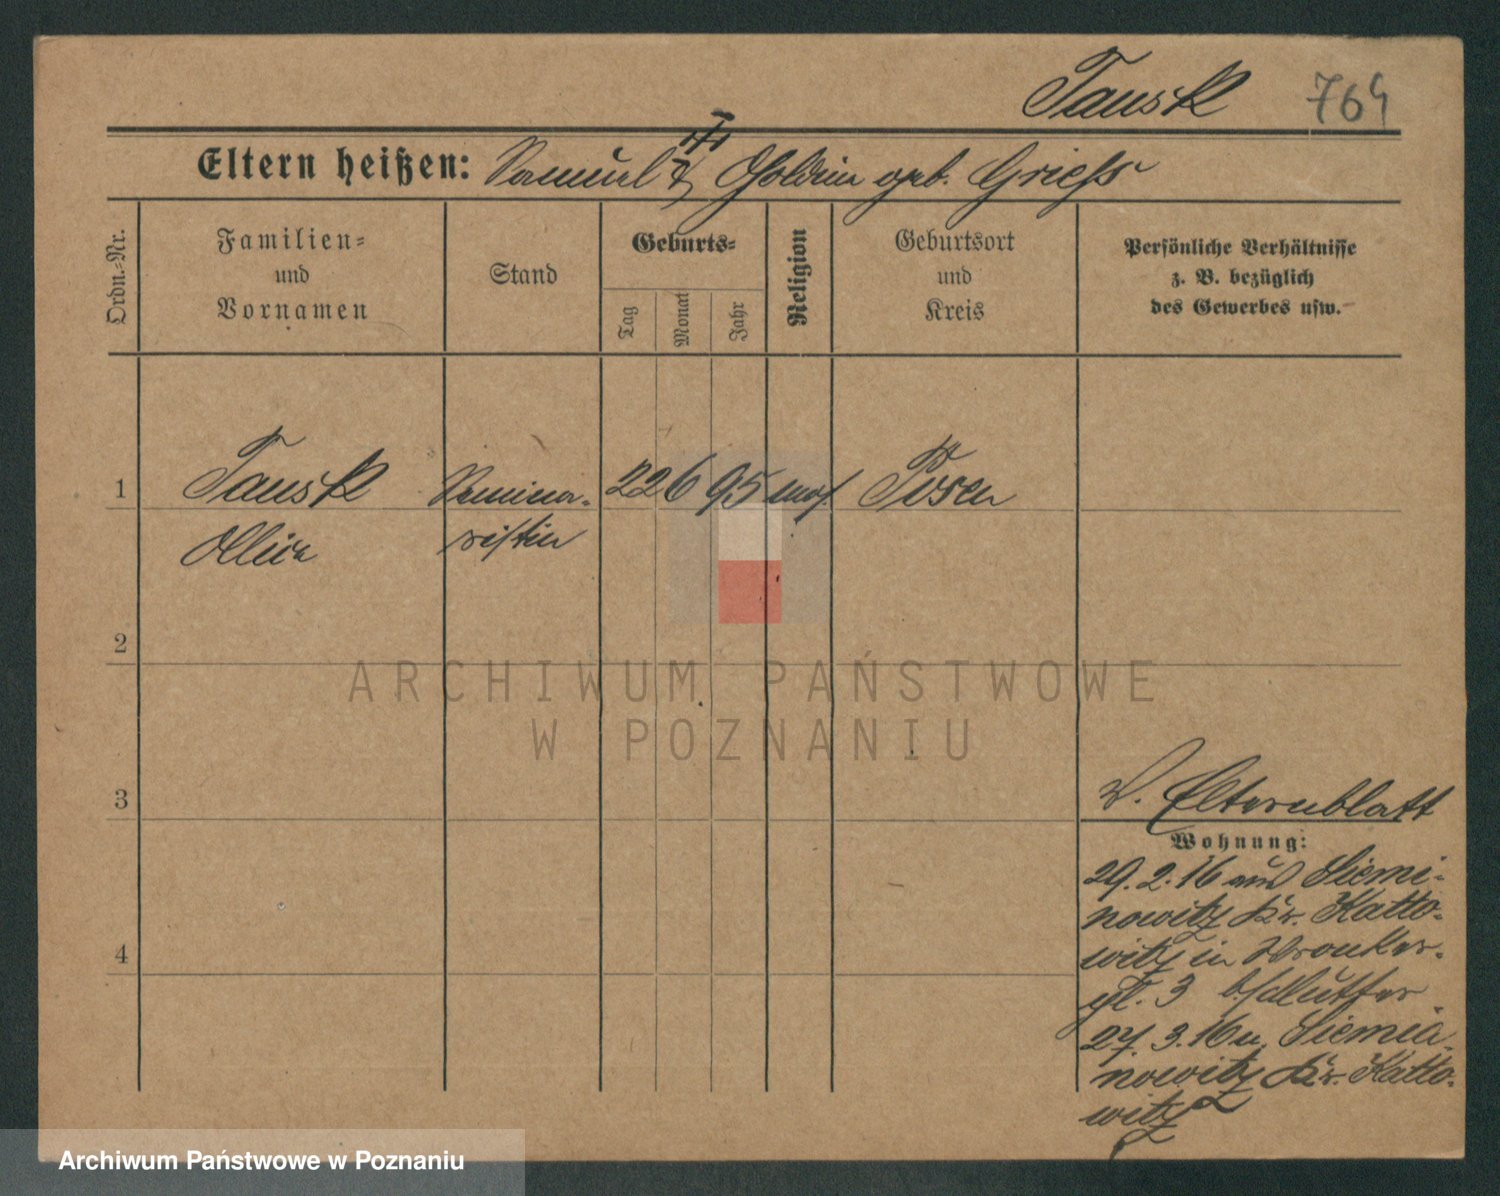 Tausk 764
Eltern heißen: Samuel ‡ Goldine geb. Griess
Ordn.-Nr.
Familien-
und
Vornamen
Stand
Geburts-
Tag
Monat
Jahr
Religion
Geburtsort
und
Kreis
Persönliche Verhältnisse
z. B. bezüglich
des Gewerbes usw.
1 Tausk Semina- 22 6 95 mos. Posen
Alice ristin
2
3
4
v. Elternblatt
Wohnung:
29.2.16 aus Siemi-
nowitz Kr. Katto-
witz in Wronker-
pl. 3 b/Mutter
27.3.16 n. Siemia-
nowitz Kr. Katto-
witz
ARCHIWUM PAŃSTWOWE
W POZNANIU
Archiwum Państwowe w Poznaniu